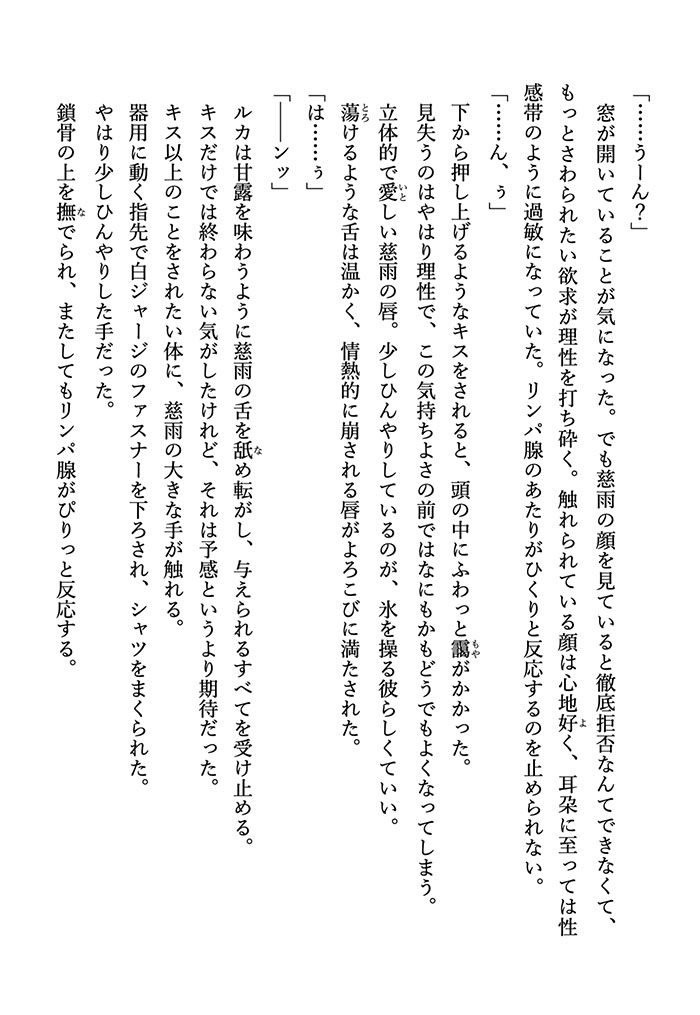 「……うーん？」
　窓が開いていることが気になった。でも慈雨の顔を見ていると徹底拒否なんてできなくて、
もっとさわられたい欲求が理性を打ち砕く。触れられている顔は心地好く、耳朶に至っては性
感帯のように過敏になっていた。リンパ腺のあたりがひくりと反応するのを止められない。
「……ん、ぅ」
　下から押し上げるようなキスをされると、頭の中にふわっと靄がかかった。
　見失うのはやはり理性で、この気持ちよさの前ではなにもかもどうでもよくなってしまう。
　立体的で愛しい慈雨の唇。少しひんやりしているのが、氷を操る彼らしくていい。
　蕩けるような舌は温かく、情熱的に崩される唇がよろこびに満たされた。
「は……ぅ」
「――ンッ」
　ルカは甘露を味わうように慈雨の舌を舐め転がし、与えられるすべてを受け止める。
　キスだけでは終わらない気がしたけれど、それは予感というより期待だった。
　キス以上のことをされたい体に、慈雨の大きな手が触れる。
　器用に動く指先で白ジャージのファスナーを下ろされ、シャツをまくられた。
　やはり少しひんやりした手だった。
　鎖骨の上を撫でられ、またしてもリンパ腺がぴりっと反応する。